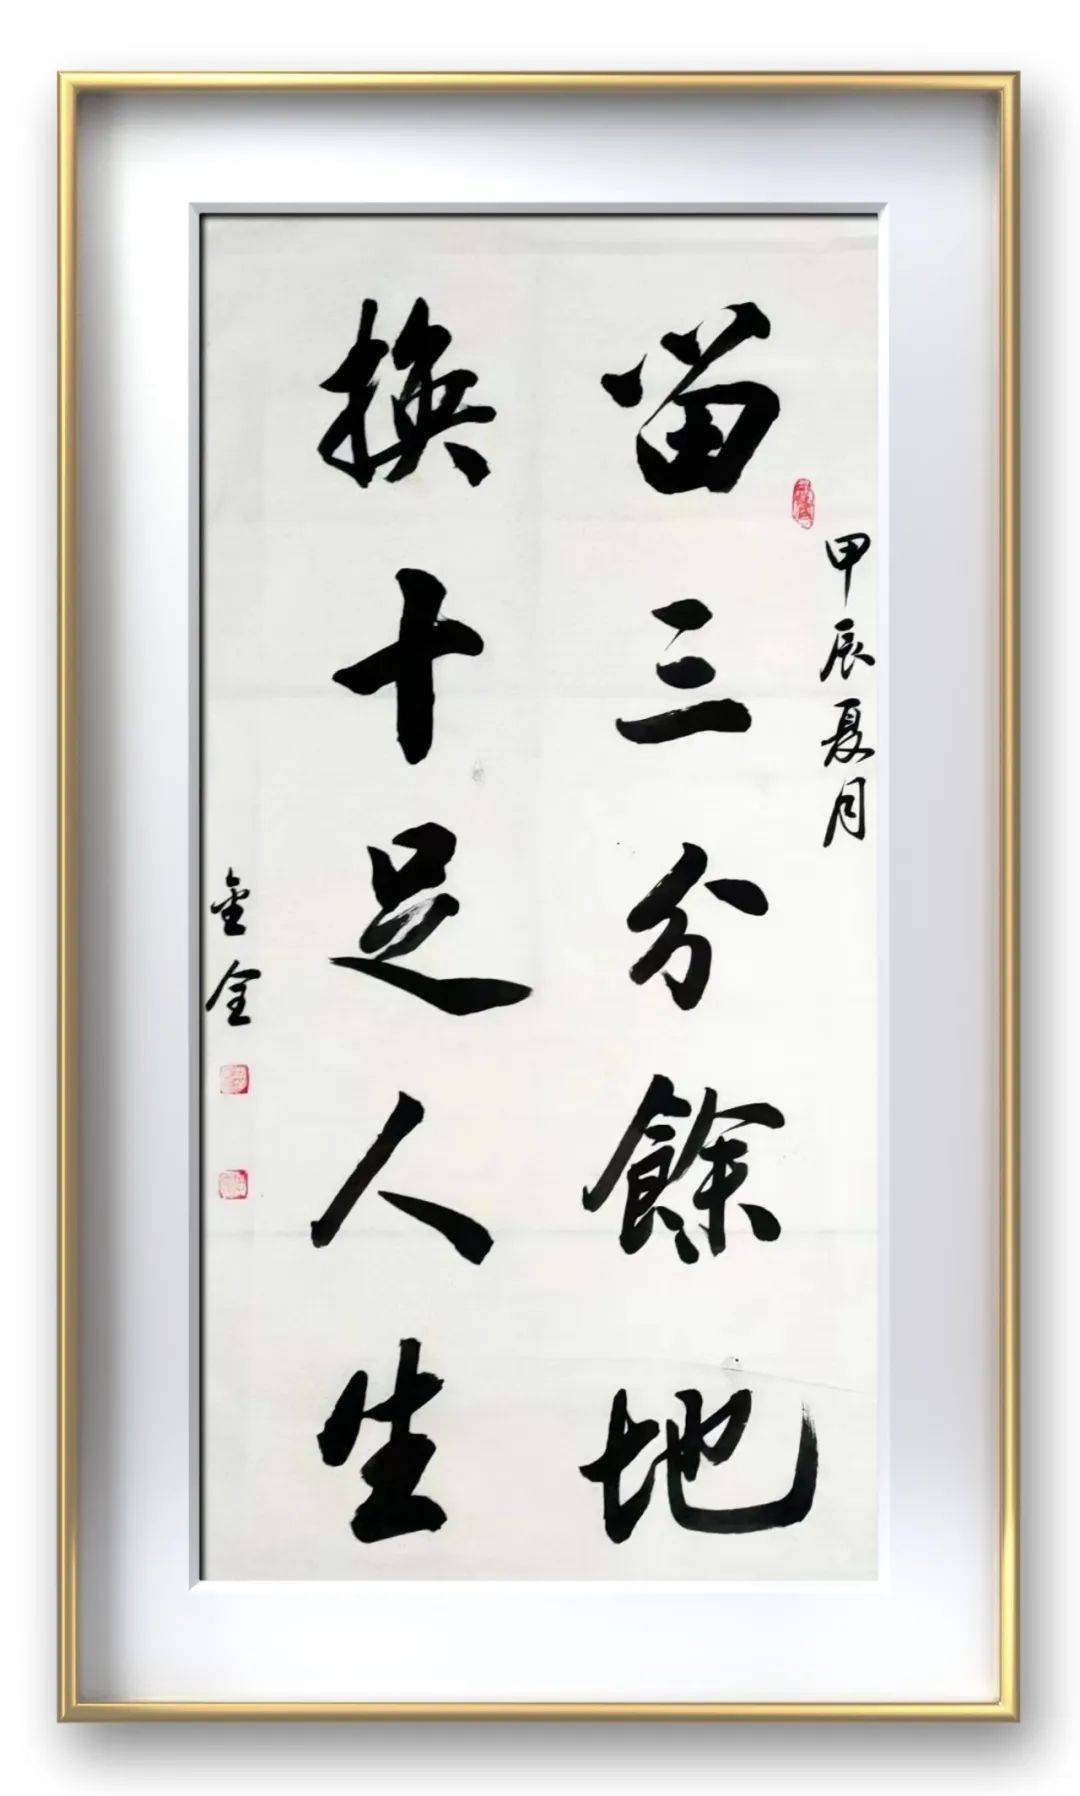 甲辰夏月
留三分餘地
換十足人生
金全